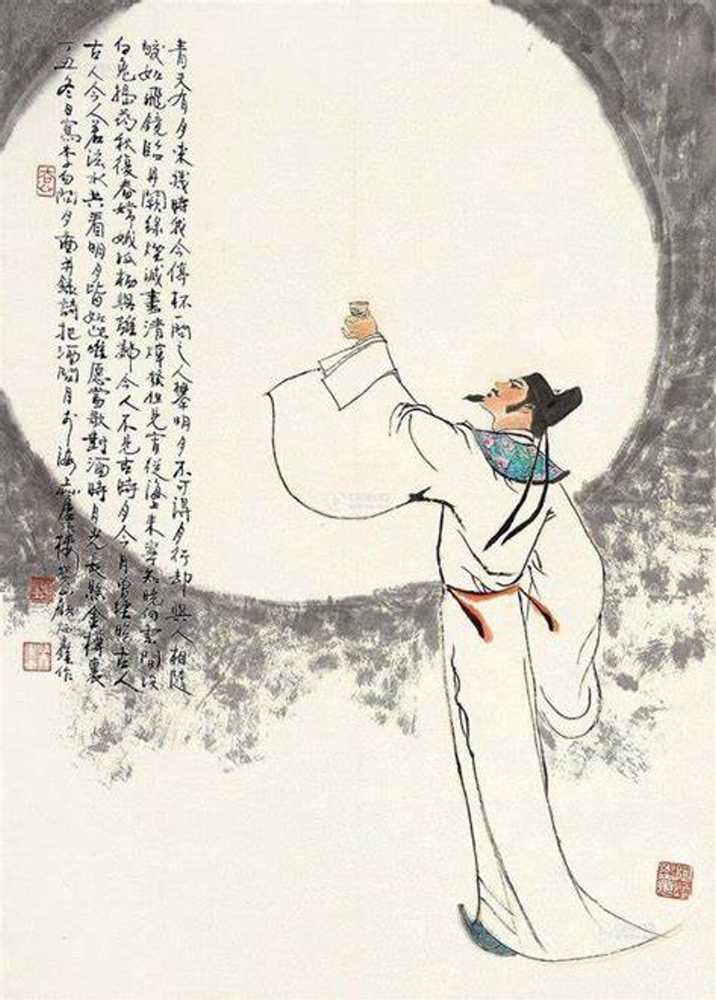 青天有月来几时我今停杯一问之人攀明月不可得月行却与人相随
皎如飞镜临丹阙绿烟灭尽清辉发但见宵从海上来宁知晓向云间没
白兔捣药秋复春嫦娥孤栖与谁邻今人不见古时月今月曾经照古人
古人今人若流水共看明月皆如此唯愿当歌对酒时月光长照金樽里
丁丑冬日写李白问月图并录诗把酒问月于海上